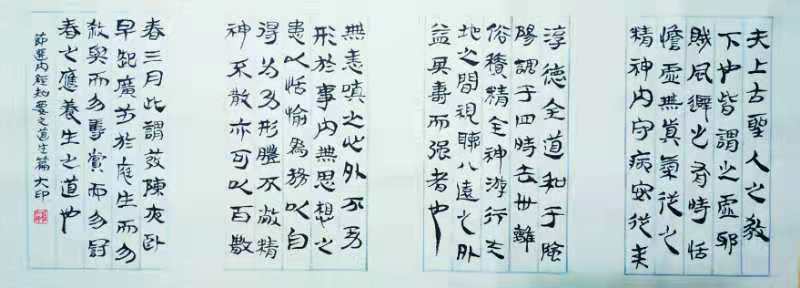 夫上古聖人之教
下也皆謂之虛邪
賊風避之有時恬
憺虛無真氣從之
精神內守病安從來
淳德全道和于陰
陽調于四時去世離
俗積精全神游行天
地之間視聽八遠之外
益其壽而强者也
無恚嗔之心外不勞
形於事內無思想之
患以恬愉為務以自
得為功形體不敝精
神不散亦可以百數
春三月此謂發陳夜臥
早起廣步於庭生而勿
殺與而勿奪賞而勿罰
春之應養生之道也
節選內經知要之道生篇 大印